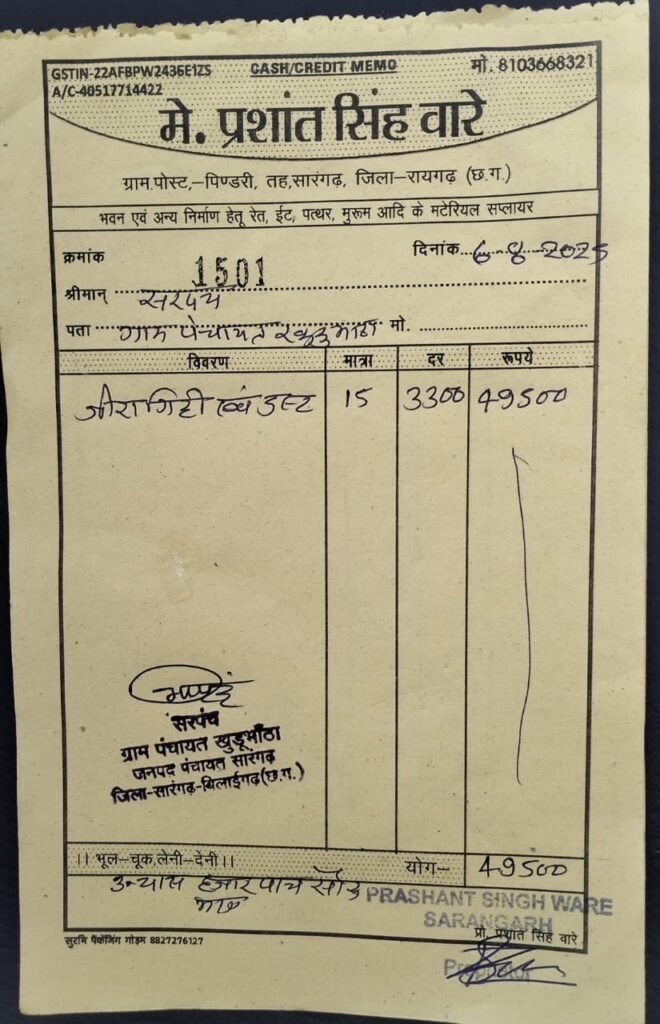 GSTIN-22AFBPW2436E1ZS CASH/CREDIT MEMO मो. 8103668321
A/C-40517714422
मे. प्रशांत सिंह वारे
ग्राम.पोस्ट,-पिण्डरी, तह,सारंगढ़, जिला-रायगढ़ (छ.ग.)
भवन एवं अन्य निर्माण हेतू रेत, ईट, पत्थर, मुरूम आदि के मटेरियल सप्लायर
क्रमांक 1501 दिनांक 6-8-2025
श्रीमान् सरपंच
पता ग्राम पंचायत मो.
विवरण मात्रा दर रूपये
जीरा गिट्टी एवं डस्ट 15 3300 49500
सरपंच
ग्राम पंचायत खुडूभाँठा
जनपद पंचायत सारंगढ़
जिला-सारंगढ़-बिलाईगढ़(छ.ग.)
।। भूल-चूक,लेनी-देनी।। योग- 49500
हजार पाच सौ
PRASHANT SINGH WARE
SARANGARH
प्रो. प्रशांत सिंह वारे
सुरभि पैकेजिंग गोड़म 8827276127
Proprietor